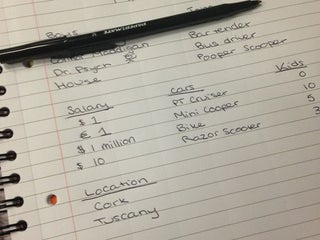 Boys
Dr. Psych
House
Bar tender
Bus driver
Pooper Scooper
Salary
$ 1
€ 1
$ 1 million
$ 10
Cars
PT Cruiser
Mini Cooper
Bike
Razor Scooter
Kids
0
10
5
Location
Cork
Tuscany